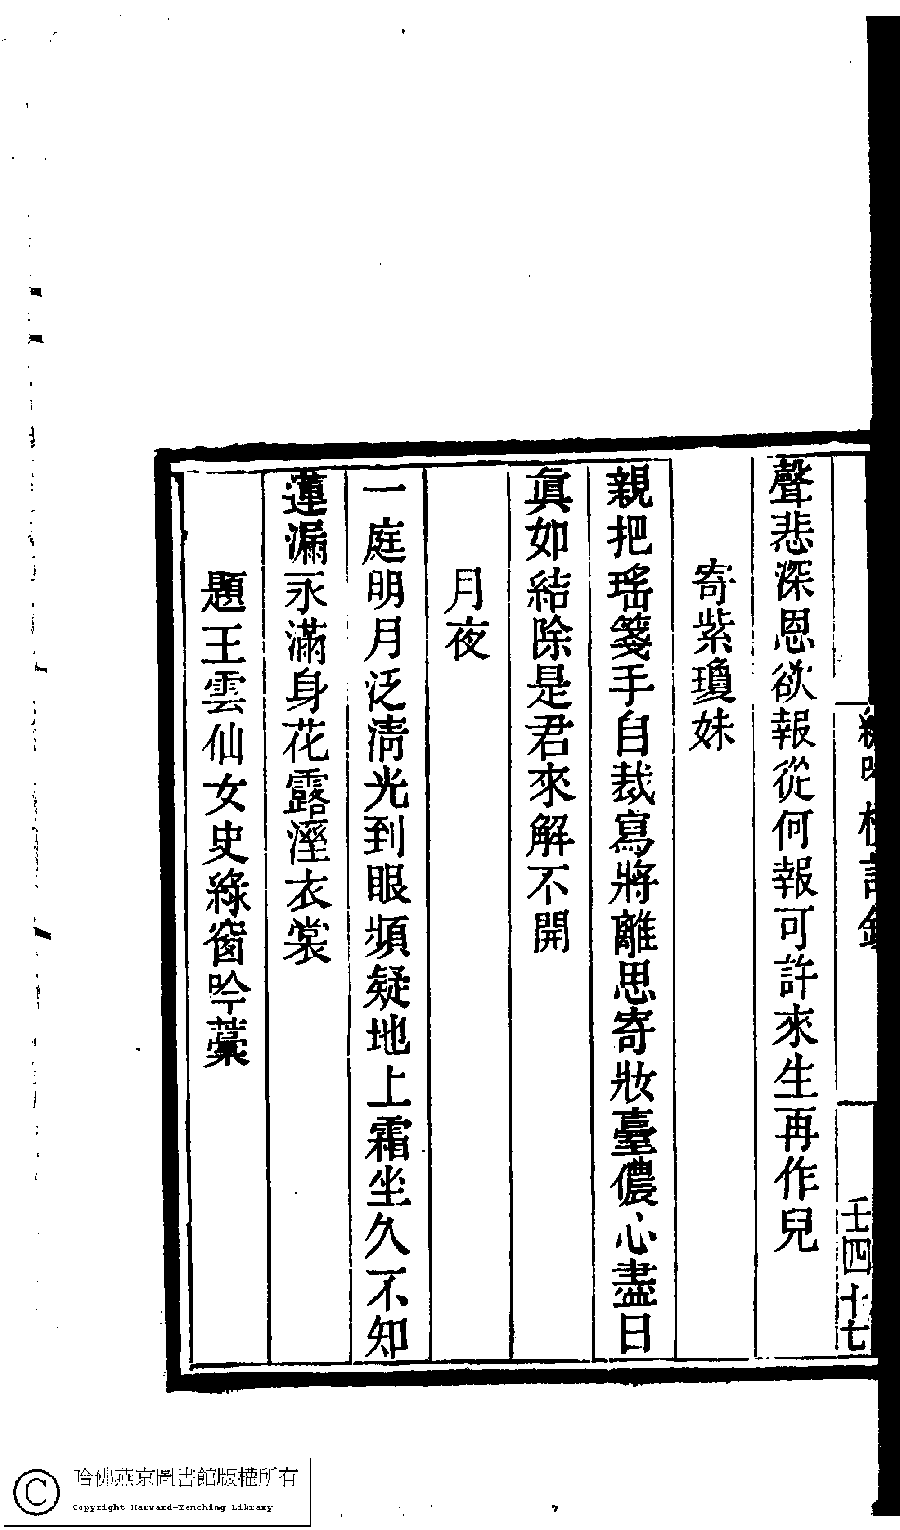 聲悲深恩欲報從何報可許來生再作兒
寄紫瓊妹
親把瑤箋手自裁寫將離思寄妝臺儂心盡日
眞如結除是君來解不開
月夜
一庭明月泛淸光到眼頻疑地上霜坐久不知
蓮漏永滿身花露溼衣裳
題王雲仙女史綠窗吟藁
壬四十七
哈佛燕京圖書館版權所有
Copyright Harvard-Yenching Library